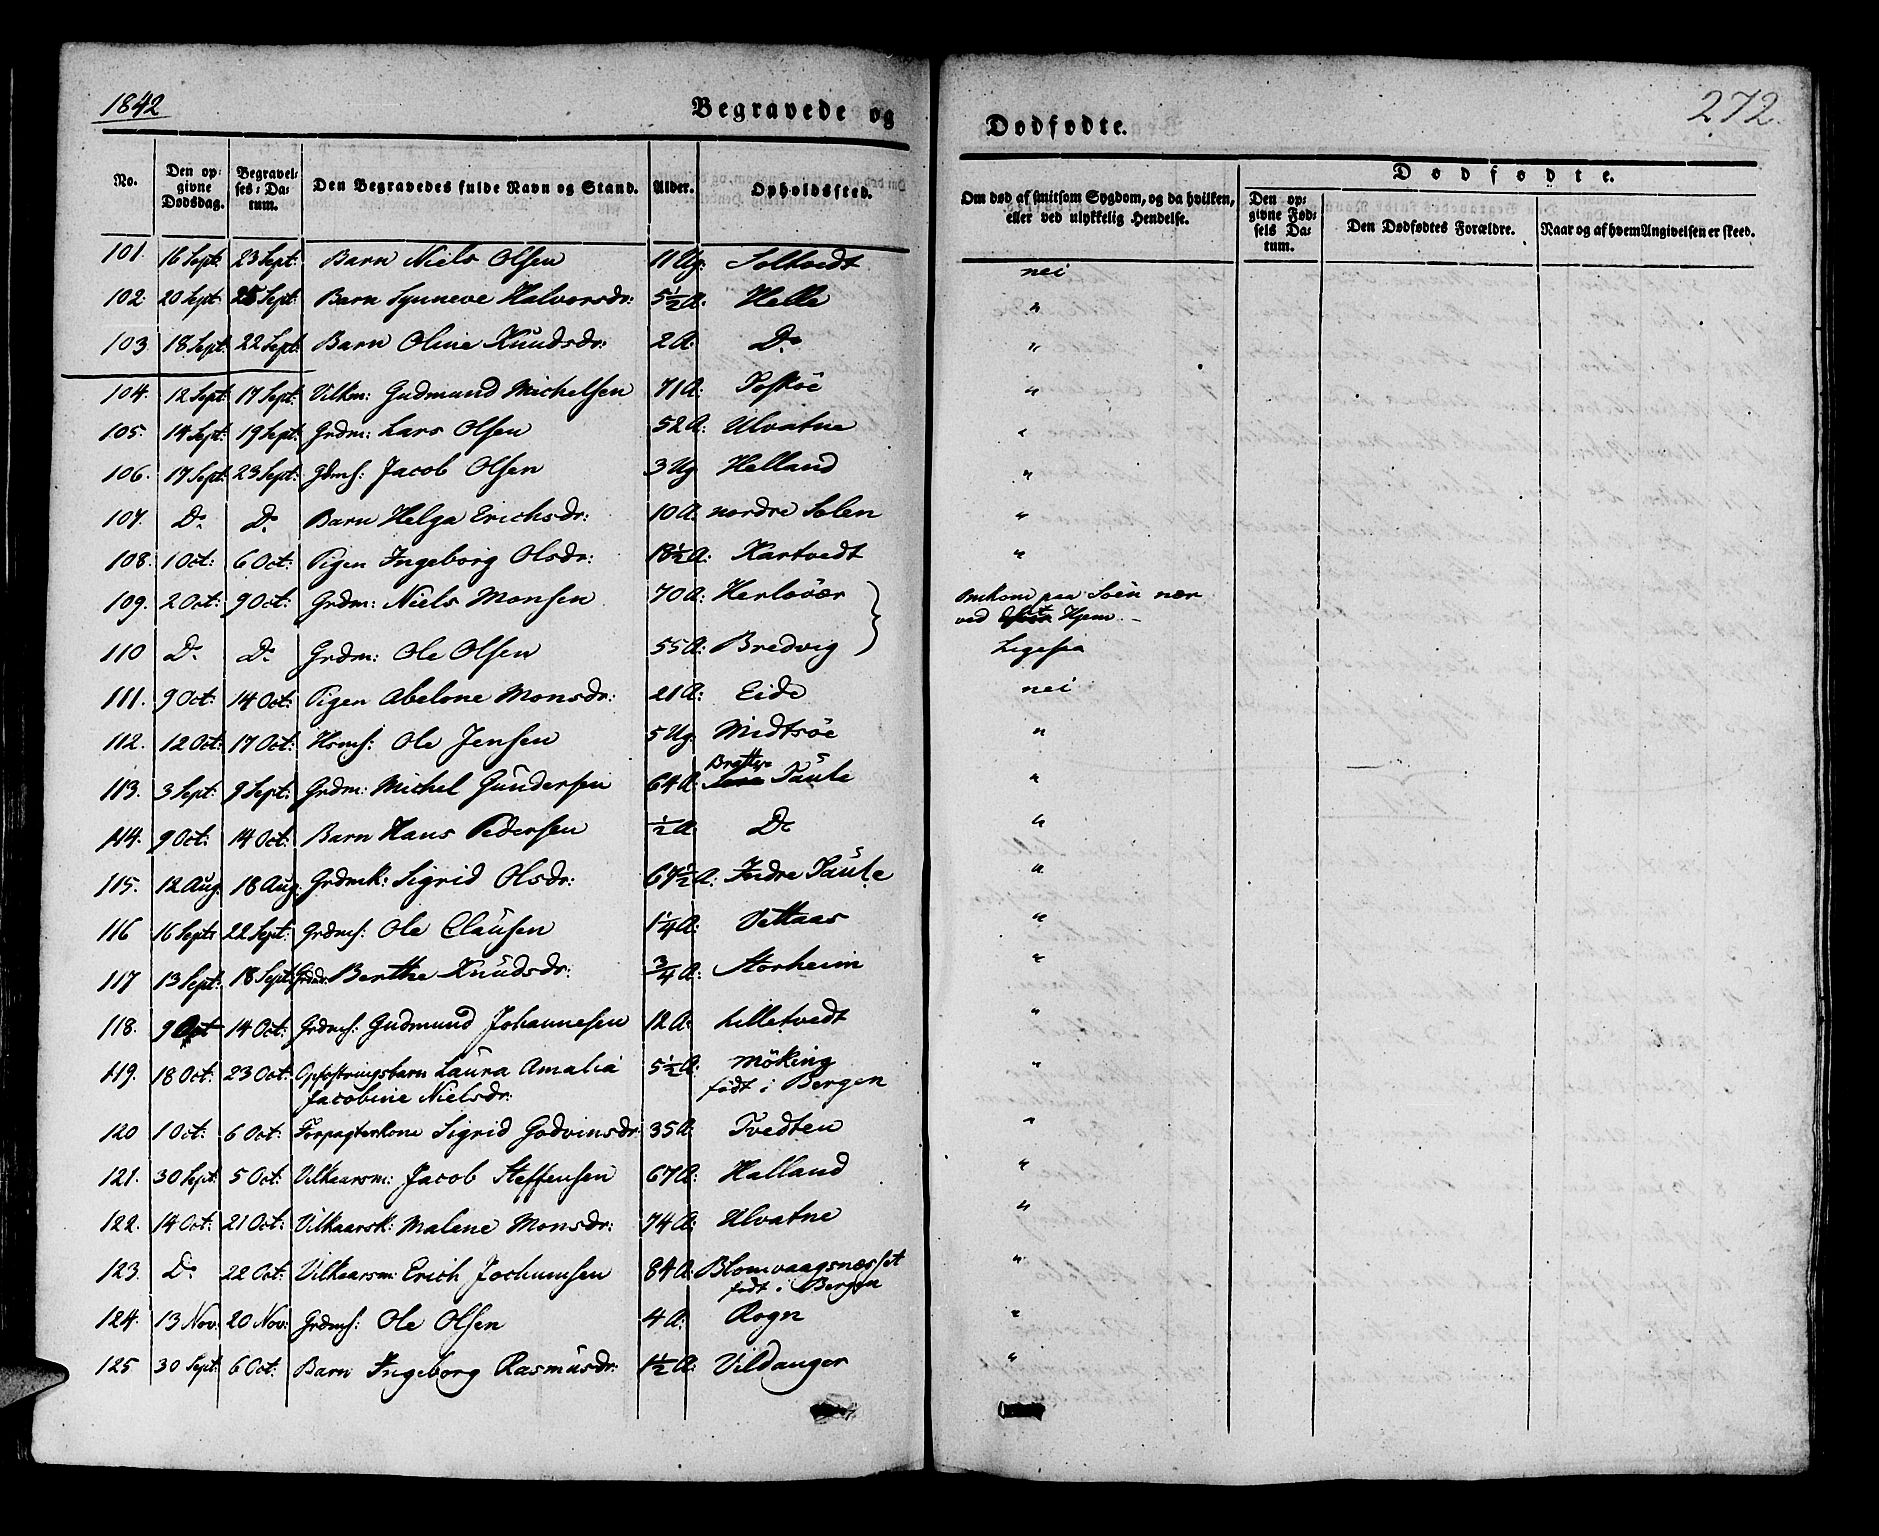 1842
Begravede og Dødfødte.
272.
No. Den opgivne Dødsdag. Begravelses-Datum. Den Begravedes fulde Navn og Stand. Alder. Opholdssted. Om død af smitsom Sygdom, og da hvilken, eller ved ulykkelig Hendelse.
Dødfødte.
Den opgivne Fødsels Datum. Den Dødfødtes Forældre. Naar og af hvem Angivelsen er skeed.
101. 16 Sept: 23 Sept: Barn Niels Olsen 11 Ug: Soltvedt nei
102. 20 Sept 25 Sept: Barn Synneve Halvorsdr: 5½ A: Helle "
103 18 Sept: 22 Sept: Barn Oline Knudsdr: 2 A: Do "
104. 12 Sept 17 Sept: Vilkm: Gudmund Michelsen 71 A: Toskøe "
105. 14 Sept: 19 Sept: Grdm: Lars Olsen 52 A: Ulvatne "
106. 17 Sept: 23 Sept: Gdms: Jacob Olsen 3 Ug Helland "
107. Do Do Barn Helga Erichsdr: 10 A: nordre Solen "
108. 1 Oct: 6 Oct: Pigen Ingeborg Olsdr: 18½ A: Kartvedt "
109. 2 Oct: 9 Oct: Grdm: Niels Monsen 70 A: Herløvær Omkom paa Søen nær
ved Hjem. –
110 Do Do Grdm: Ole Olsen 55 A: Bredvig Ligesaa
111. 9 Oct: 14 Oct: Pigen Abelone Monsdr: 21 A: Eide nei
112. 12 Oct: 17 Oct: Hsms: Ole Jensen 5 Ug Midtsøe "
113. 3 Sept: 9 Sept: Grdm: Michel Gundersen 64 A: Taule "
114. 9 Oct: 14 Oct: Barn Hans Pedersen ½ A Do "
115. 12 Aug 18 Aug: Grdmk: Sigrid Olsdr: 67½ A: Indre Taule "
116 16 Sept: 22 Sept: Grdms: Ole Clausen 1¼ A: Vettaas "
117 13 Sept: 18 Sept: Grdmd: Berthe Knudsdr: ¾ A: Storheim "
118. 9 Oct 14 Oct: Grdms: Gudmund Johannesen 12 A: Lilletvedt "
119. 18 Oct: 23 Oct: Opfostringsbarn Laura Amalia 5½ A: Møking "
Jacobine Nielsdr: født i Bergen
120 1 Oct: 6 Oct: Forpagterkone Sigrid Godvinsdr: 35 A: Tvedten "
121. 30 Sept 5 Oct: Vilkaarsm: Jacob Steffensen 67 A: Halland "
122. 14 Oct: 21 Oct: Vilkaarsk: Malene Monsdr: 74 A: Ulvatne "
123. Do 22 Oct: Vilkaarsm: Erich Jochumsen 84 A: Blomvaagsnæsset "
født i Bergen
124. 13 Nov: 20 Nov: Grdms: Ole Olsen 4 A: Rogn "
125 30 Sept: 6 Oct: Barn Ingeborg Rasmusdr: 1½ A: Vildanger "